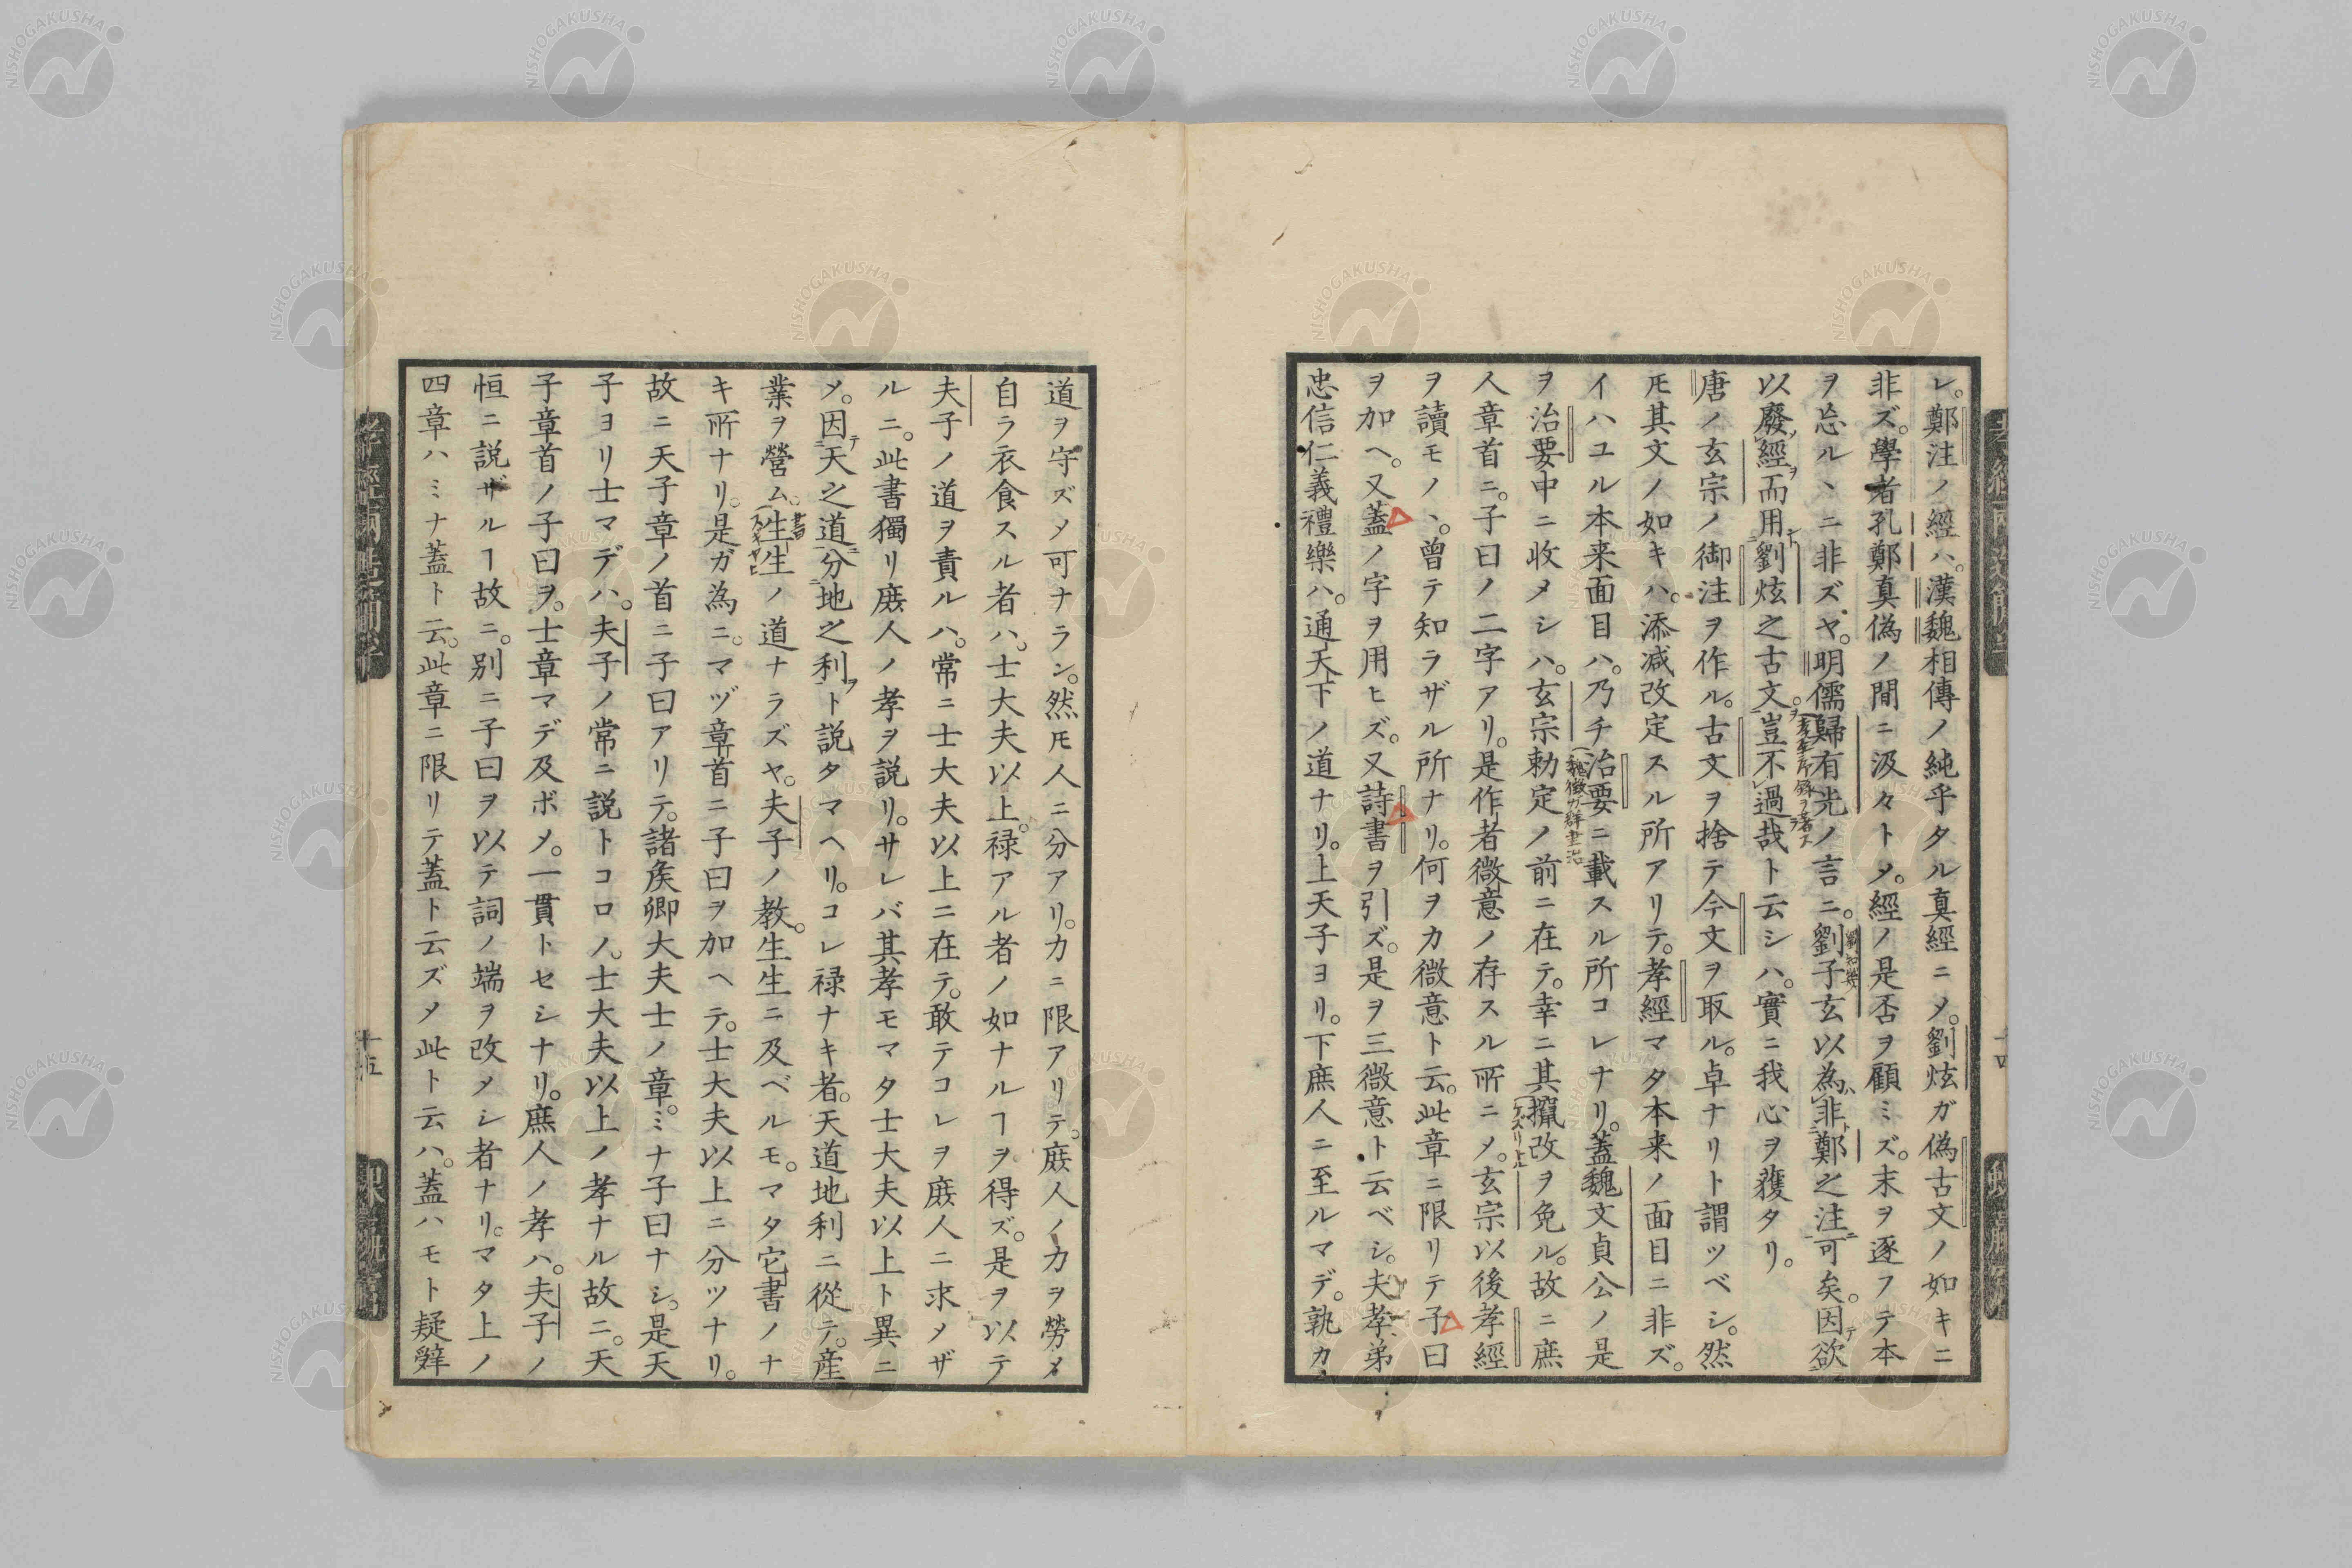 レ。鄭注ノ經ハ。漢魏相傳ノ純乎タル真經ニメ。劉炫ガ偽古文ノ如キニ
非ズ。學者孔鄭真偽ノ間ニ汲々トメ。經ノ是否ヲ顧ミズ。末ヲ逐フテ本
ヲ忘ルヽニ非ズヤ。明儒歸有光ノ言ニ。劉子玄以為非鄭之注可矣。因欲
以廢經而用劉炫之古文。豈不過哉ト云シハ。實ニ我心ヲ獲タリ。
唐ノ玄宗ノ御注ヲ作ル。古文ヲ捨テ今文ヲ取ル。卓ナリト謂ツベシ。然
𪜈其文ノ如キハ。添減改定スル所アリテ。孝經マタ本来ノ面目ニ非ズ。
イハユル本来面目ハ。乃チ治要ニ載スル所コレナリ。蓋魏文貞公ノ是
ヲ治要中ニ收メシハ。玄宗勅定ノ前ニ在テ。幸ニ其攛改ヲ免ル。故ニ庶
人章首ニ。子曰ノ二字アリ。是作者微意ノ存スル所ニメ。玄宗以後孝經
ヲ讀モノヽ。曽テ知ラザル所ナリ。何ヲカ微意ト云。此章ニ限リテ子曰
ヲ加ヘ。又蓋ノ字ヲ用ヒズ。又詩書ヲ引ズ。是ヲ三微意ト云ベシ。夫孝弟
忠信仁義禮樂ハ。通天下ノ道ナリ。上天子ヨリ。下庶人ニ至ルマデ。孰カ
道ヲ守ズメ可ナラン。然𪜈人ニ分アリ。力ニ限アリテ。庶人ノ力ヲ勞メ
自ラ衣食スル者ハ。士大夫以上。禄アル者ノ如ナルヿヲ得ズ。是ヲ以テ
夫子ノ道ヲ責ルハ。常ニ士大夫以上ニ在テ。敢テコレヲ庶人ニ求メザ
ルニ。此書獨リ庶人ノ孝ヲ説リ。サレバ其孝モマタ士大夫以上ト異ニ
メ。因天之道分地之利ト説タマヘリ。コレ禄ナキ者。天道地利ニ從テ。産
業ヲ營ム。生生ノ道ナラズヤ。夫子ノ教。生生ニ及ベルモ。マタ它書ノナ
キ所ナリ。是ガ為ニ。マヅ章首ニ子曰ヲ加ヘテ。士大夫以上ニ分ツナリ。
故ニ天子章ノ首ニ子曰アリテ。諸矦卿大夫士ノ章。ミナ子曰ナシ。是天
子ヨリ士マデハ。夫子ノ常ニ説トコロノ。士大夫以上ノ孝ナル故ニ。天
子章首ノ子曰ヲ。士章マデ及ボメ。一貫トセシナリ。庶人ノ孝ハ。夫子ノ
恒ニ説ザルヿ故ニ。別ニ子曰ヲ以テ詞ノ端ヲ改メシ者ナリ。マタ上ノ
四章ハミナ蓋ト云。此章ニ限リテ蓋ト云ズメ此ト云ハ。蓋ハモト疑辤
十五
NISHOGAKUSHA